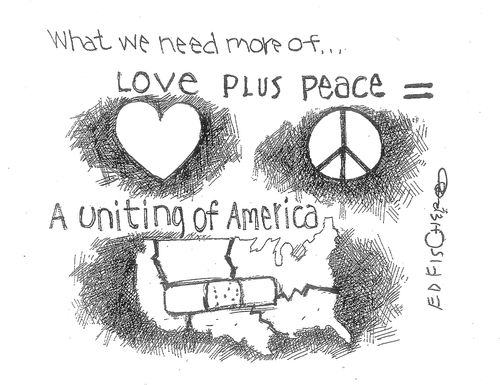 What we need more of...
LOVE PLUS Peace =
A uniting of America
ED FISCHER